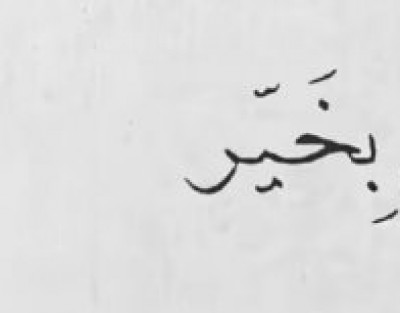 بِخَيّر